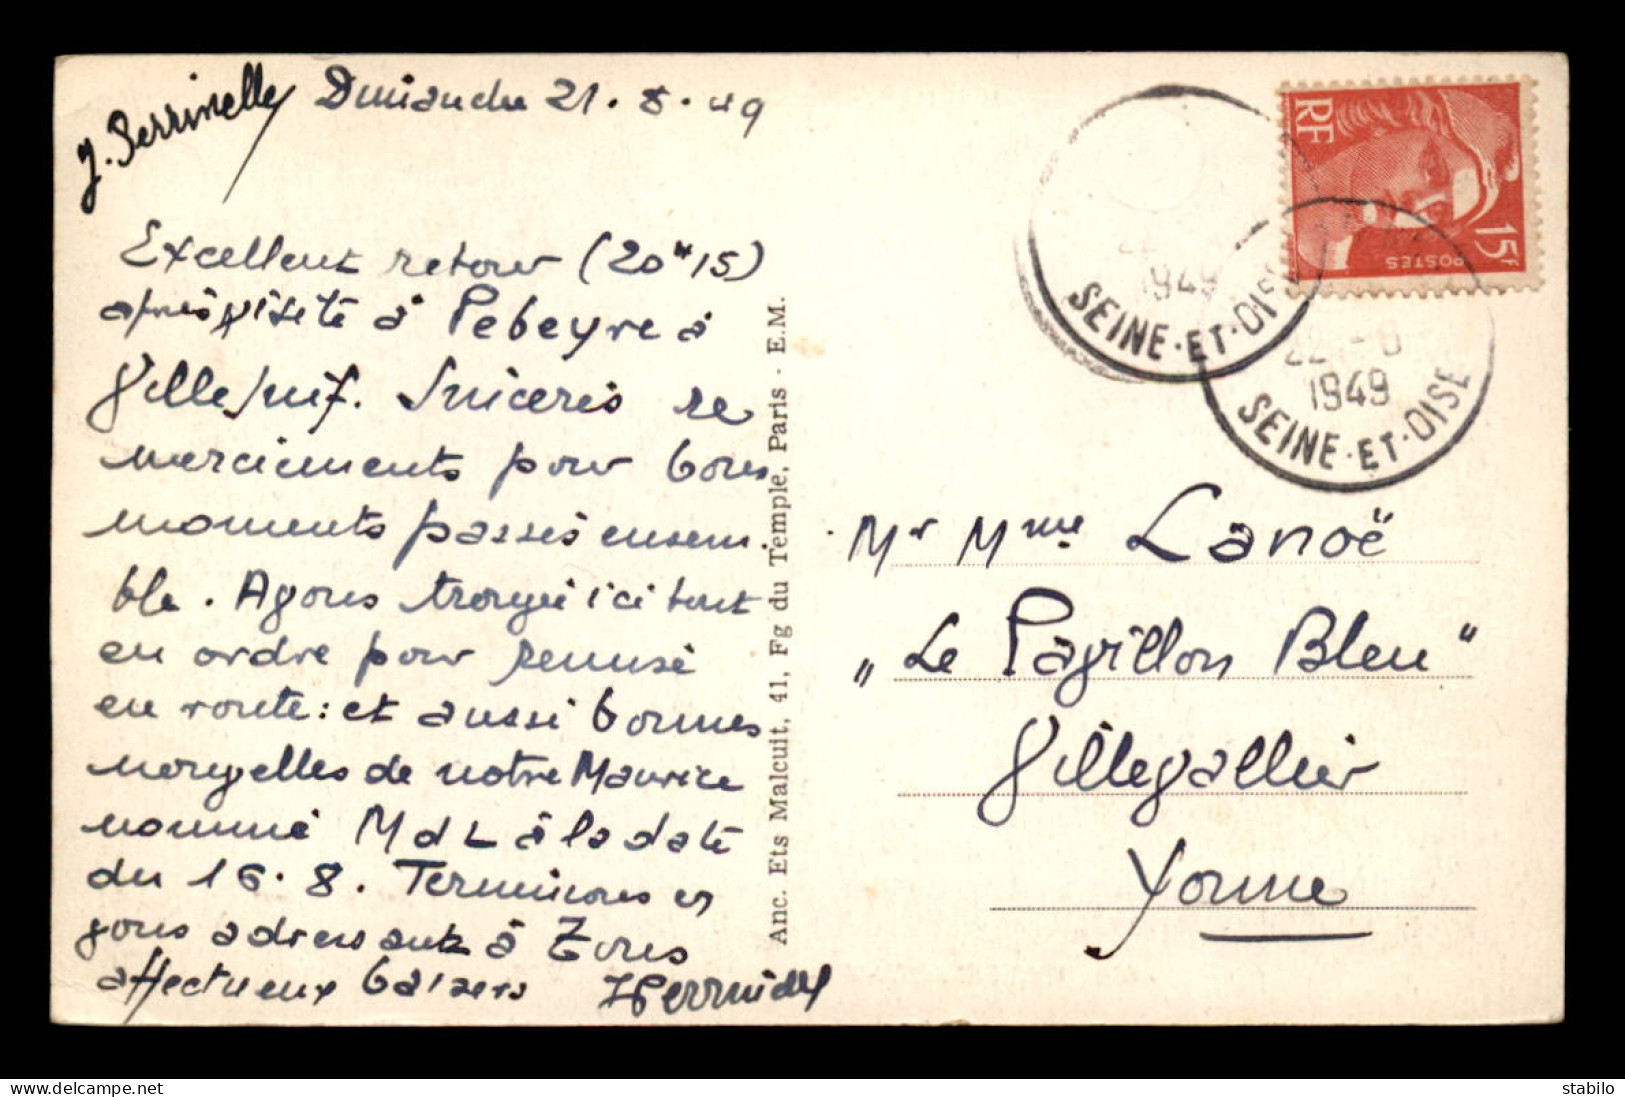 J. Perrinelle
Dimanche 21.8.49
Excellent retour (20H15)
après visite à Pebeyre à
Villeneuf. Sincères re
merciements pour bons
moments passés ensem
ble. Avons trouvé ici tout
en ordre pour
en route: et aussi bonnes
nouvelles de notre Maurice
nommé MdL à la date
du 16.8. Terminons en
vous adressant à Tous
affectueux baisers
Anc. Ets Malcuit, 41, Fg du Temple, Paris - E.M.
RF
15F
POSTES
22
1949
SEINE-ET-OISE
22 -8
1949
SEINE-ET-OISE
Mr Mme Lanoë
"Le Pavillon Bleu"
Villevallier
Yonne
stabilo